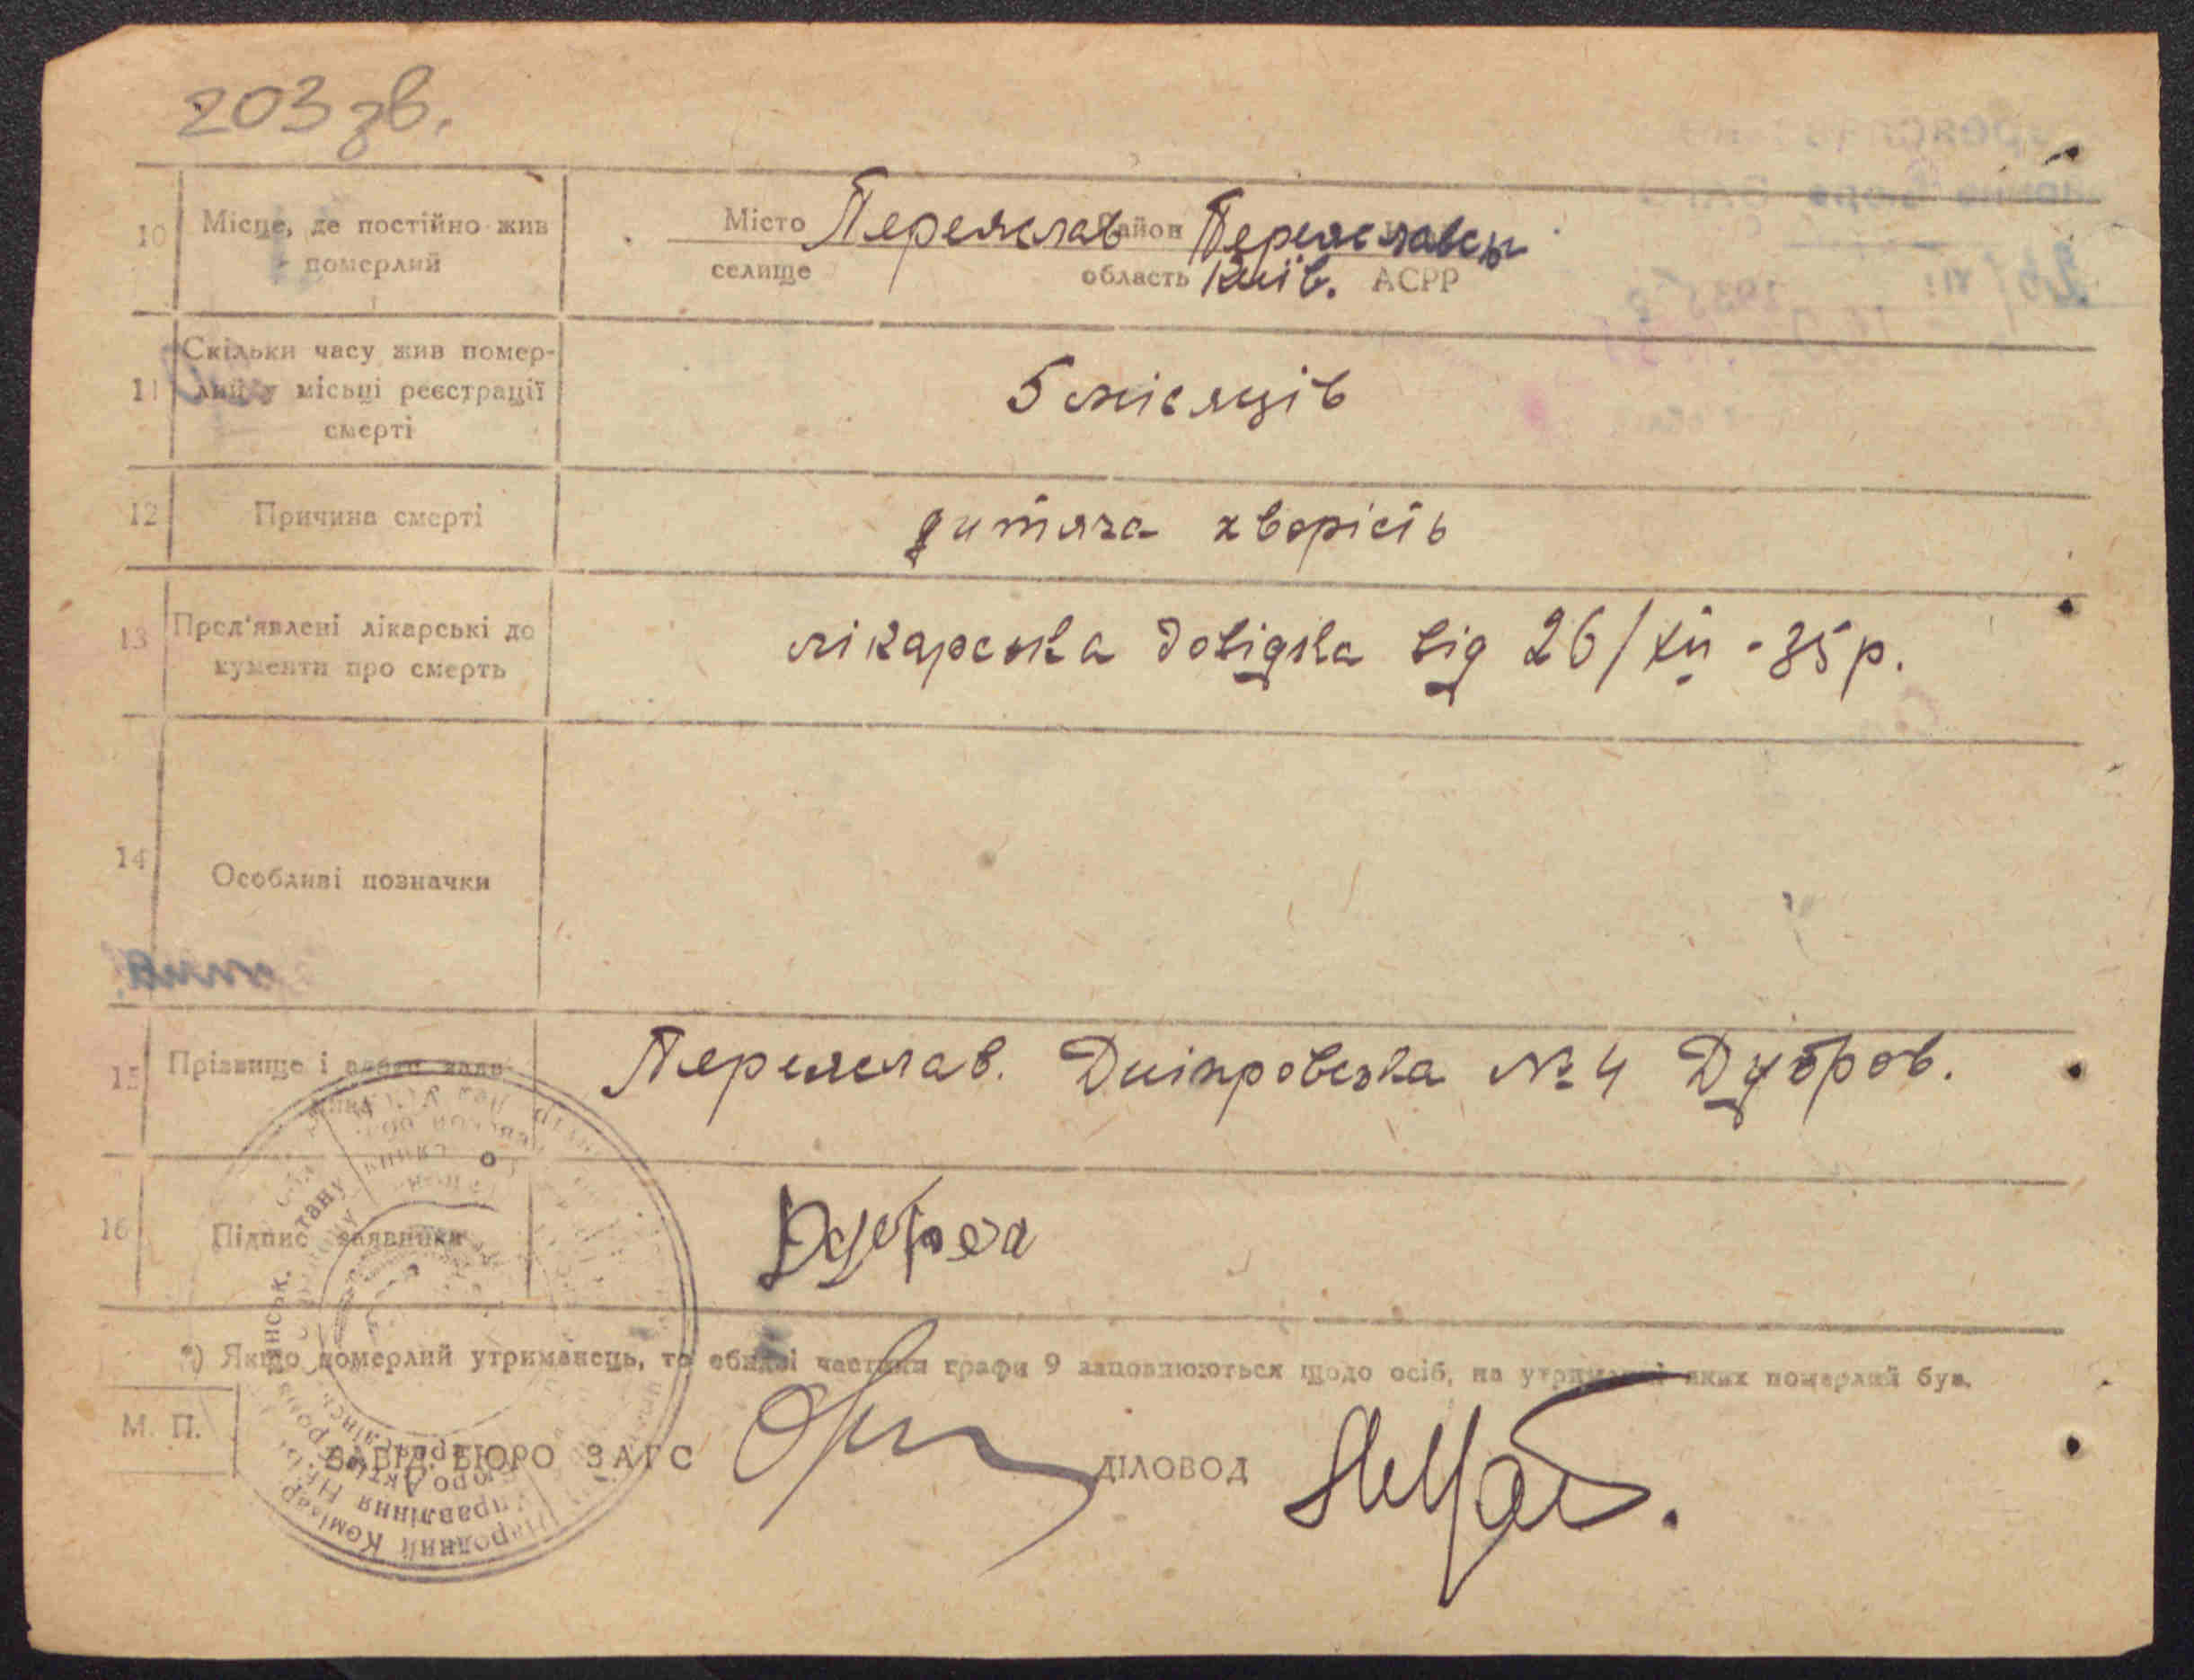 203 зв.
10 Місце, де постійно жив померлий Місто Переяслав Район Переяславськ
селище область Київ. АСРР
11 Скільки часу жив помер-
лий у місьці реєстрації
смерті 5 місяців
12 Причина смерті дитяча хворість
13 Пред'явлені лікарські до
кументи про смерть лікарська довідка від 26/XII - 35 р.
14 Особливі позначки
15 Прізвище і адреса заяв-
ника Переяслав. Дніпровська № 4 Дубров.
16 Підпис заявника
*) Якщо померлий утриманець, то обидві частини графи 9 заповнюються щодо осіб, на утриманні яких померлий був.
М. П.
ЗАВІД. БЮРО ЗАГС ДІЛОВОД
Народний Коміс
Управління